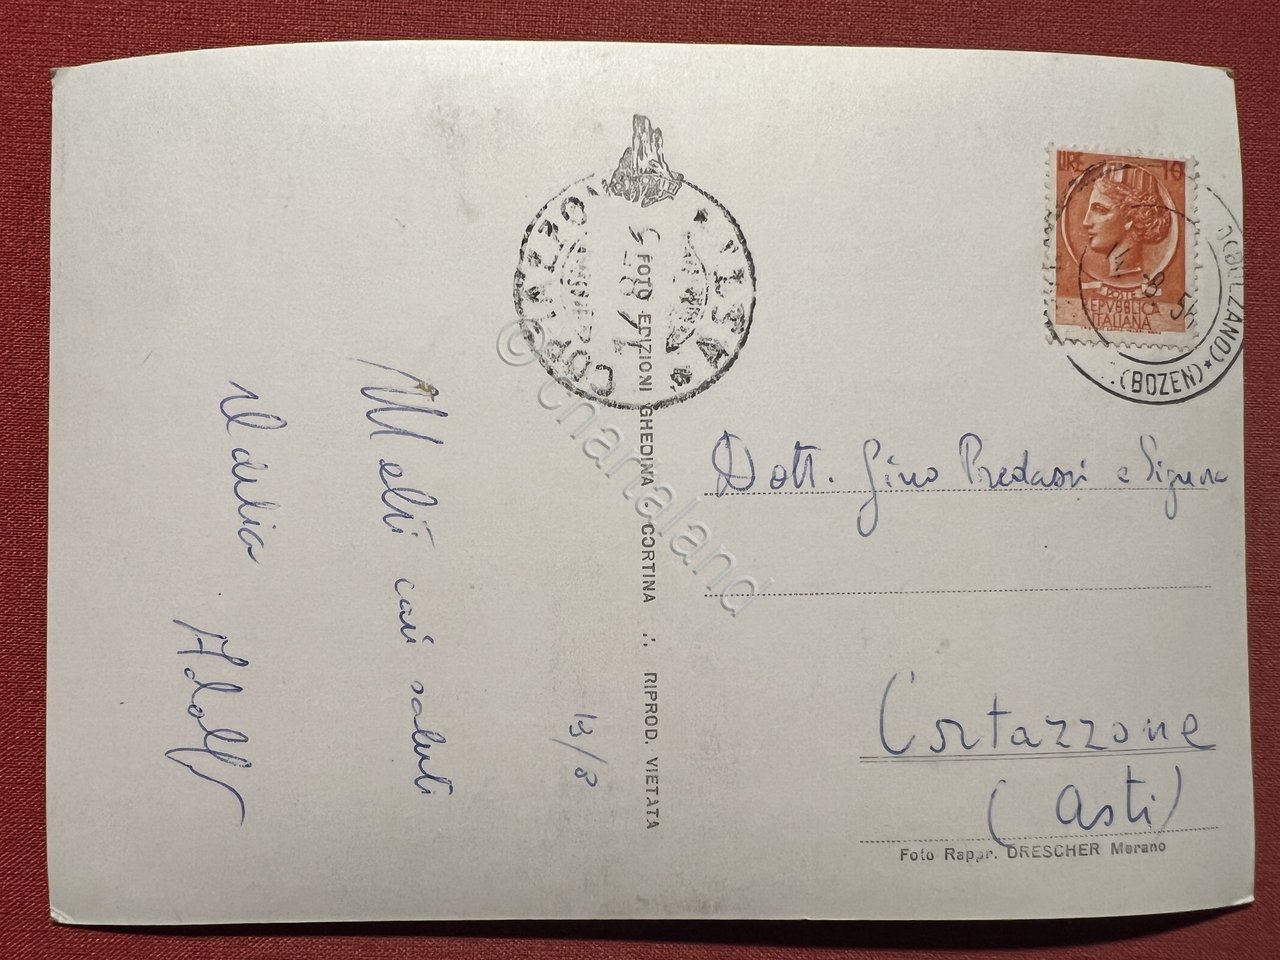 13/8
Molti cari saluti
Adelia Adolfo
FOTO EDIZIONI GHEDINA - CORTINA ∴ RIPROD. VIETATA
CORTAZZONE
ASTI
LIRE 10
POSTE
REPVBBLICA
ITALIANA
(BOLZANO)*
(BOZEN)
Dott. Gino Predassi e Signora
Cortazzone
(Asti)
Foto Rappr. DRESCHER Merano
© chartaland